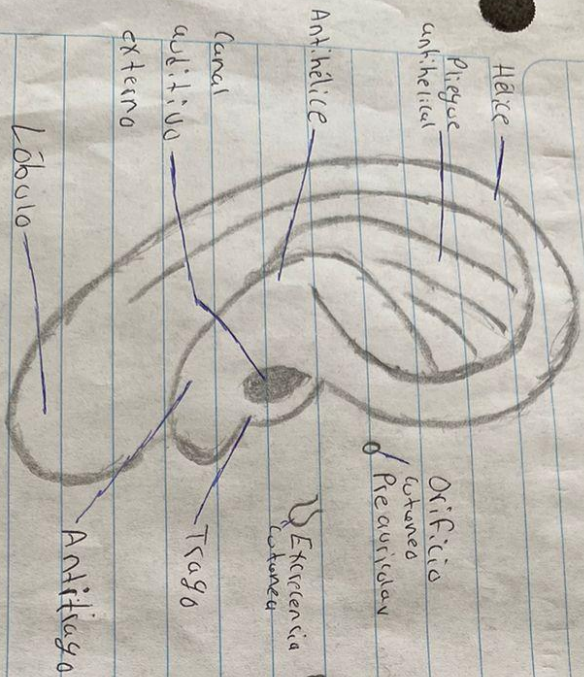 Hélice
Pliegue
antihelical
Antihélice
Canal
auditivo
externo
Lóbulo
Orificio
cutaneo
Preauricular
Excrecencia
cutanea
Trago
Antitrago